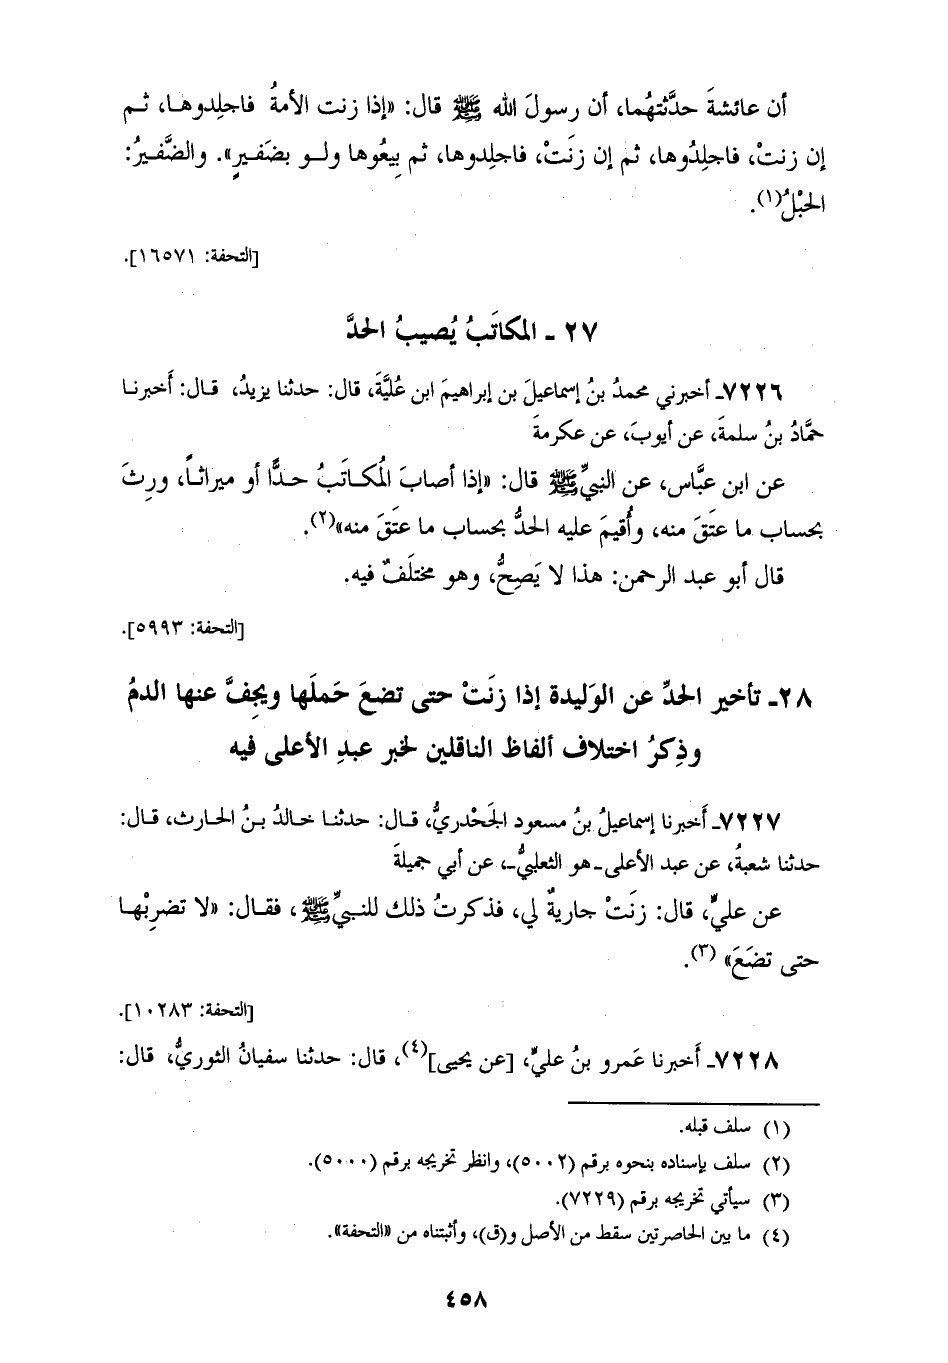 أن عائشةَ حدَّثتهُما، أن رسولَ الله ﷺ قال: «إذا زنت الأمةُ فاجلِدوها، ثم
إن زنتْ، فاجلِدُوها، ثم إن زنَتْ، فاجلِدوها، ثم بِيعُوها ولو بضَفيرٍ». والضَّفيرُ:
الحبْلُ(١).
[التحفة: ١٦٥٧١].
٢٧ ـ المكاتَبُ يُصيبُ الحدَّ
٧٢٢٦ـ أخبرني محمدُ بنُ إسماعيلَ بن إبراهيمَ ابن عُليَّةَ، قال: حدثنا يزيدُ، قال: أَخبرنا
حمَّادُ بنُ سلمةَ، عن أيوبَ، عن عكرمةَ
عن ابن عبَّاس، عن النبيِّ ﷺ قال: «إذا أصابَ المُكاتَبُ حدًّا أو ميراثاً، ورِثَ
بحساب ما عتَقَ منه، وأُقيمَ عليه الحدُّ بحساب ما عتَقَ منه»(٢).
قال أبو عبد الرحمن: هذا لا يَصِحُّ، وهو مختلَفٌ فيه.
[التحفة: ٥٩٩٣].
٢٨ـ تأخير الحدِّ عن الوَليدة إذا زنَتْ حتى تضعَ حَملَها ويجِفَّ عنها الدمُ
وذِكرُ اختلاف ألفاظ الناقلين لخبر عبدِ الأعلى فيه
٧٢٢٧ـ أَخبرنا إسماعيلُ بنُ مسعود الجَحْدريُّ، قال: حدثنا خالدُ بنُ الحارث، قال:
حدثنا شعبةُ، عن عبد الأعلى ـ هو الثعلبيُّ ـ، عن أبي جميلةَ
عن عليٍّ، قال: زنَتْ جاريةٌ لي، فذكرتُ ذلك للنبيِّ ﷺ، فقال: «لا تضرِبْها
حتى تضَعَ» (٣).
[التحفة: ١٠٢٨٣].
٧٢٢٨ـ أَخبرنا عَمرو بنُ عليٍّ، [عن يحيى](٤)، قال: حدثنا سفيانُ الثوريُّ، قال:
(١) سلف قبله.
(٢) سلف بإسناده بنحوه برقم (٥٠٠٢)، وانظر تخريجه برقم (٥٠٠٠).
(٣) سيأتي تخريجه برقم (٧٢٢٩).
(٤) ما بين الحاصرتين سقط من الأصل و(ق)، وأثبتناه من «التحفة».
٤٥٨